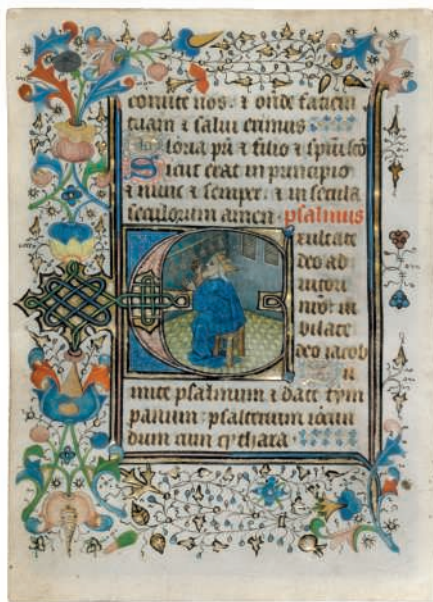 tuam & salui erimus
Gloria pr̃i & filio & sp̃ui sc̃o
Sicut erat in principio
& nunc & semper: & in secula
seculorum amen. psalmus
Exultate
deo ad
iutori
nr̃o: iu
bilate
deo iacob
Su
mite psalmum & date tym
panum: psalterium iocun
dum cum cythara